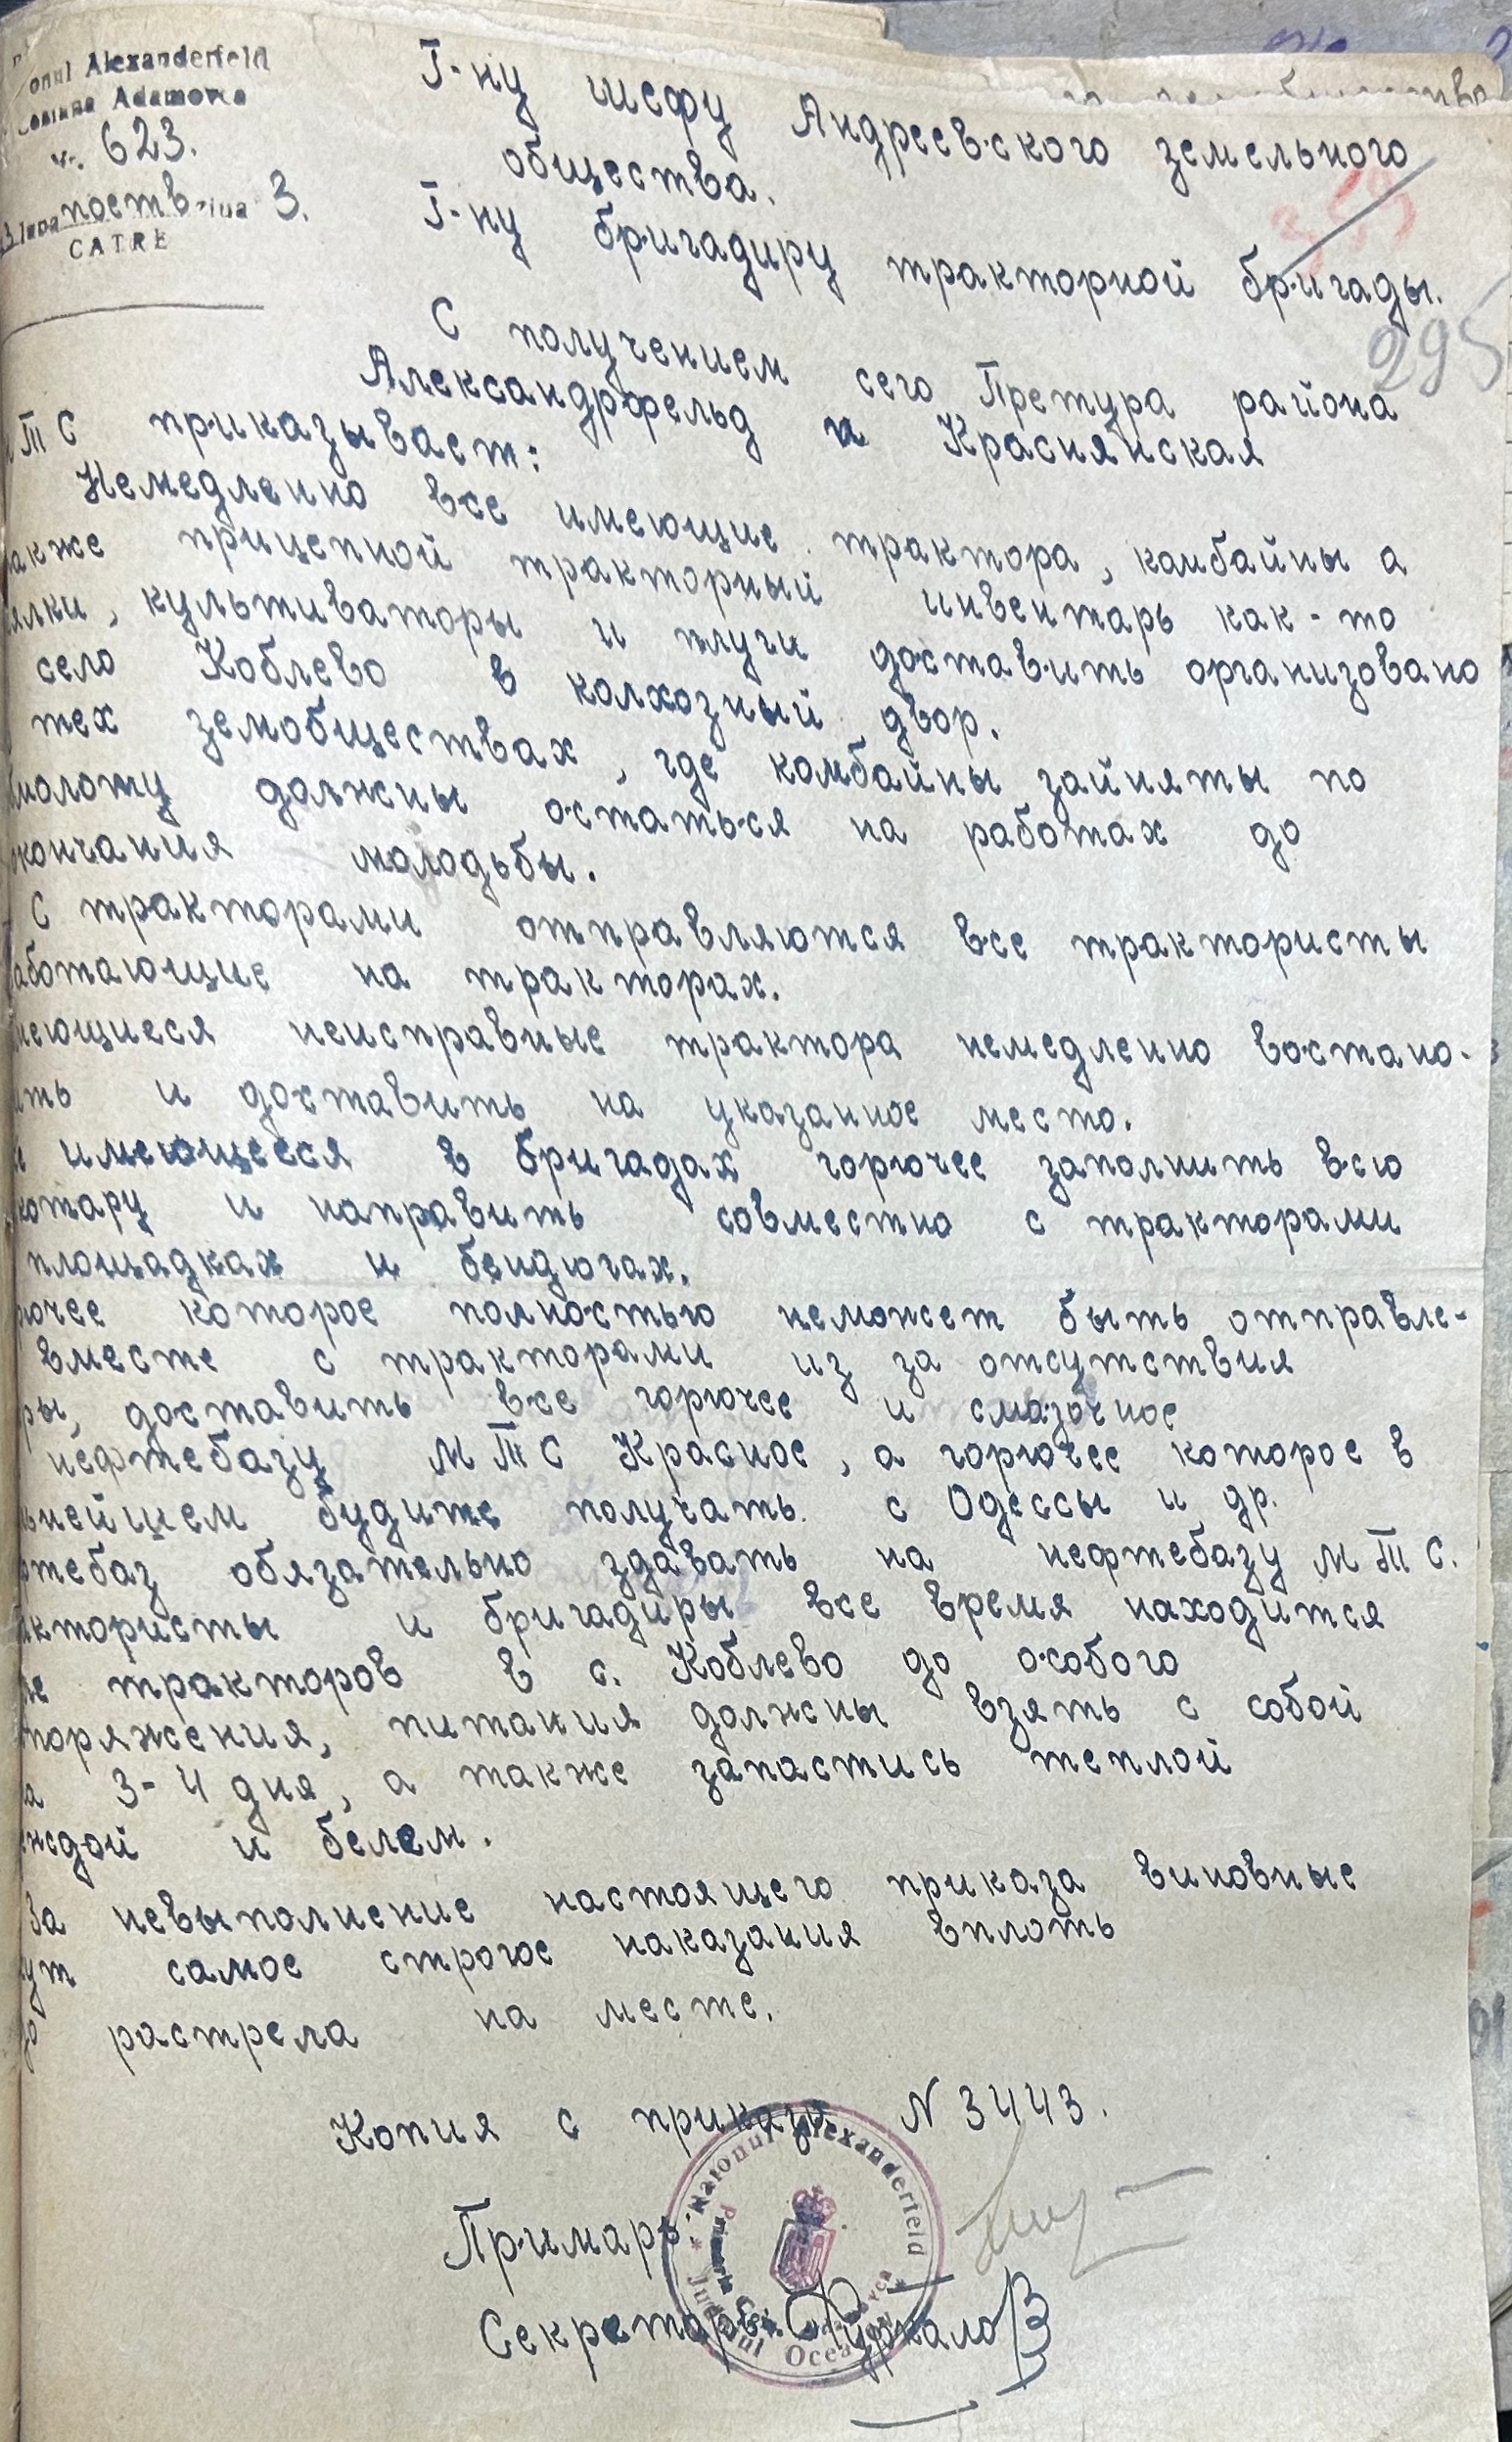 onul Alexanderfeld
Comuna Adamovca
Nr. 623.
luna ноетв ziua 3.
CATRE
Г-ну шефу Андреевского земельного
общества.
Г-ну бригадиру тракторной бригады.
295
С получением сего Претура района
Александрфельд и Краснянская
МТС приказывает:
Немедленно все имеющие трактора, комбайны а
акже прицепной тракторный инвентарь как-то
ялки, культиваторы и плуги доставить организовано
село Коблево в колхозный двор.
тех земобществах, где комбайны зайняты по
молоту должны остаться на работах до
окончания молодьбы.
С тракторами отправляются все трактористы
аботающие на тракторах.
меющиеся неисправные трактора немедленно востано-
ить и доставить на указанное место.
имеющееся в бригадах горючее заполнить всю
тару и направить совместно с тракторами
площадках и бендюгах.
ючее которое полностью неможет быть отправле-
вместе с тракторами из за отсутствия
ры, доставить все горючее и смазочное
нефтебазу МТС Красное, а горючее которое в
ьнейшем будите получать с Одессы и др.
фтебаз обязательно здавать на нефтебазу МТС.
актористы и бригадиры все время находится
ле тракторов в с. Коблево до особого
поряжения, питания должны взять с собой
на 3-4 дня, а также запастись теплой
еждой и белем.
За невыполнение настоящего приказа виновные
ут самое строгое наказания вплоть
до растрела на месте.
Копия с приказа N 3443.
Примарь:
Секретарь: Фуркало
Raionul Alexanderfeld
Judetul Oceacov